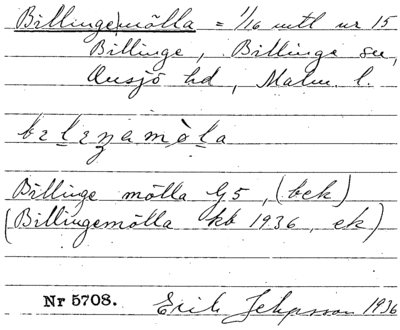 Billinge|mölla = 1/16 mtl nr 15
Billinge, Billinge sn,
Onsjö hd, Malm. l.
Billinge mölla G5, (bek)
(Billingemölla kb 1936, ek)
Nr 5708. Erik Jeppsson 1936